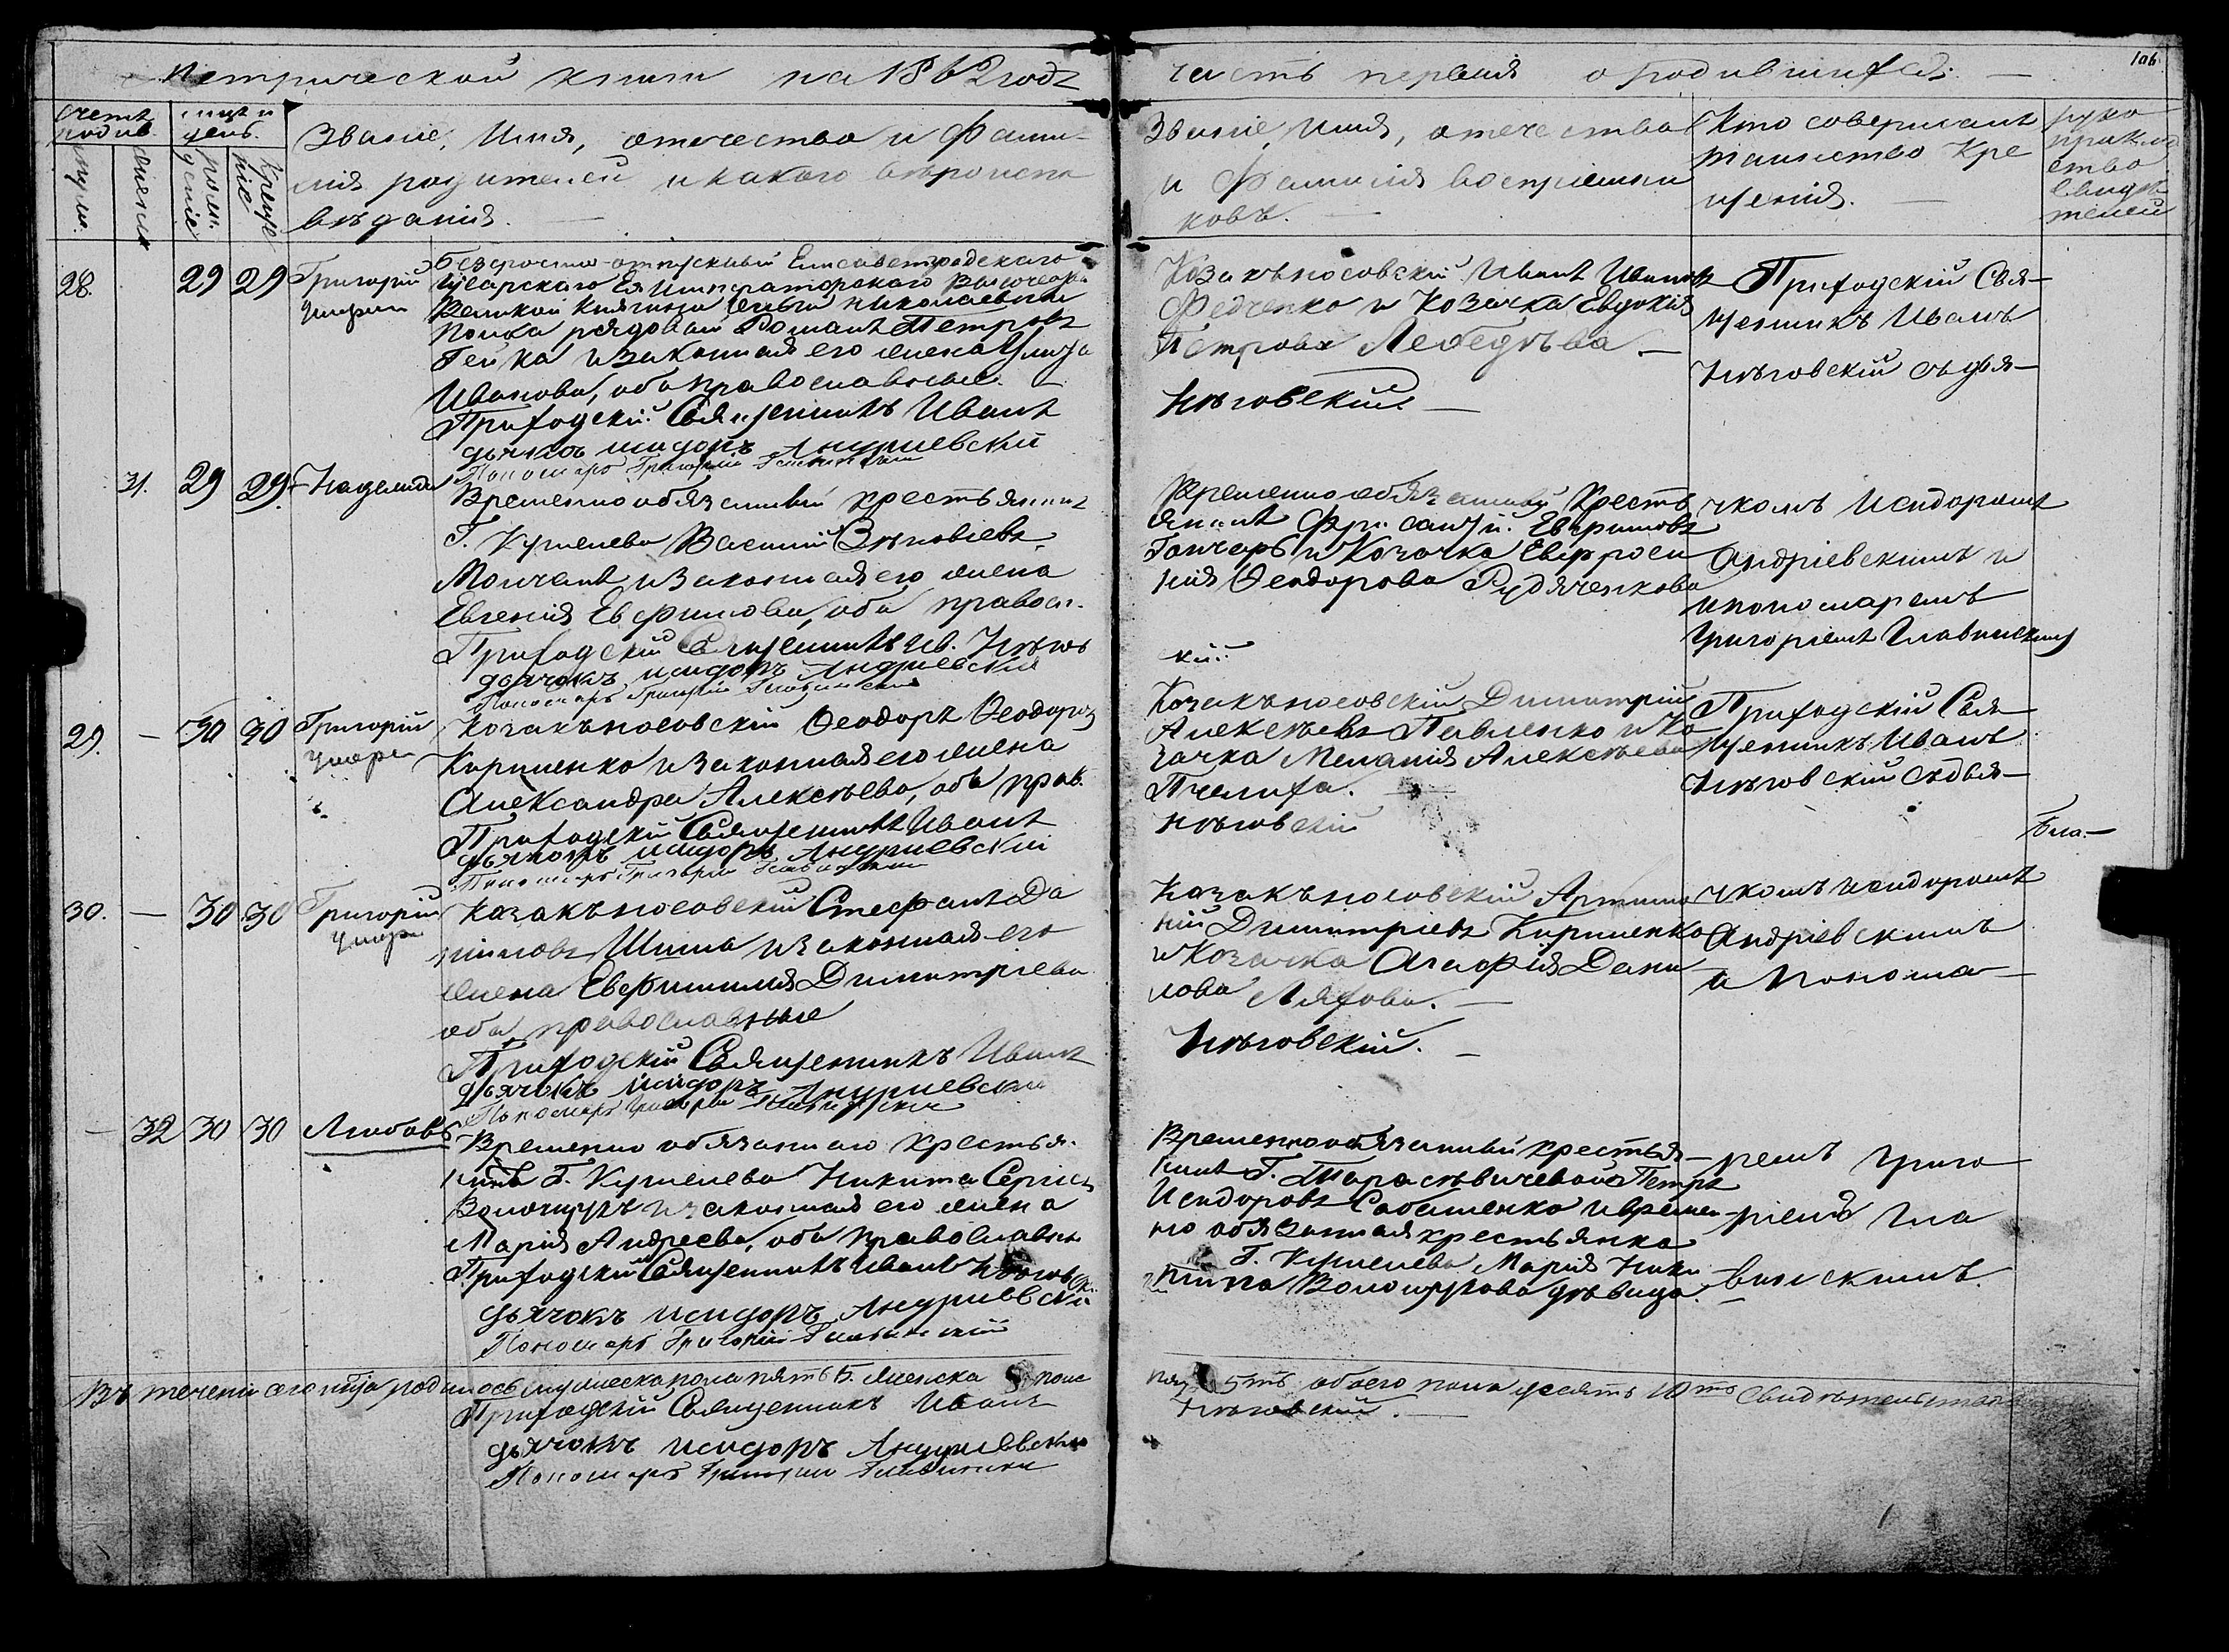 Метрической книги на 1862 годъ
часть первая о родившихся.
106
Счетъ родив.
мцъ и день.
мужес.
женска
рожденіе
крещеніе
Званіе, Имя, отечество и Фами-
лія родителей и какого вѣроиспо
вѣданія.
Званіе, Имя, отечество
и Фамилія воспріемни
ковъ.
Кто совершалъ
таинство Кре
щенія.
руко
прикла
ство
свидѣ
телей
28. 29 29 Григорій
умре
Безсрочно-отпускный Елисаветградскаго
Гусарскаго Ея Императорскаго Высочества
Великой Княгини Ольги Николаевны
Полка рядовый Романъ Петровъ
Гейка и законная его жена
Иванова, оба православные.
Приходскій Священникъ Иванъ
Нѣговскій
дьячокъ исидоръ Андриевский
Пономарь Григорій Главинскій
Козакъ носовскій Иванъ Ивановъ
Федченко и Козачка Евдокія
Петрова Лебедѣва.
Приходскій Свя-
щенникъ Иванъ
Нѣговскій съ дья-
31. 29 29. Надежда
Временно обязанный крестьянинъ
Г. Кушелева Василий Зѣновіевъ
Молчанъ и законная его жена
Евгенія Евфимова, оба правосл.
Приходскій Священникъ Ив. Нѣгов
скій
дьячокъ исидоръ Андриевский
Пономарь Григорій Главинскій
Временно обязанный Кресть
янинъ Евфимовъ
Гончаръ и Козачка Евфроси
нія Феодорова Рудяченкова
чкомъ Исидоромъ
Андріевскимъ и
и пономаремъ
Григоріемъ Главинскимъ
29. — 30 30 Григорій
умре
Козакъ носовскій Феодоръ Феодоров
Кириленко и законная его жена
Александра Алексѣева, оба прав.
Приходскій Священникъ Иванъ
Нѣговскій
дьячокъ исидоръ Андриевский
Пономарь Григорій Главинскій
Козакъ носовскій Димитрій
Алексѣевъ Павленко и Ко
зачка Меланія Алексѣева
Пчелиха.
Приходскій Свя-
щенникъ Иванъ
Нѣговскій съ дья-
Бла-
30. — 30 30 Григорій
умре
Козакъ носовскій Стефанъ Да
ніиловъ Шила и законная его
жена Евфимія Димитріева
оба православные
Приходскій Священникъ Иванъ
Нѣговскій.
дьячокъ исидоръ Андриевский
Пономарь Григорій Главинскій
Козакъ носовскій
Димитріевъ Кириленко
и Козачка Агафія Дани
лова Ляхова.
чкомъ исидоромъ
Андріевскимъ
а Понома-
— 32 30 30 Любовь
Временно обязаннаго крестья-
нинъ Г. Кушелева Никита Сергіев
Волощукъ и законная его жена
Марія Андреева, оба православн
Приходскій Священникъ Иванъ Нѣговск
дьячокъ исидоръ Андриевский
Пономарь Григорій Главинскій
Временно обязанный крестья-
нинъ Г. Тарасѣвичевой Петръ
Исидоровъ Собатенко и времен-
но обязанная крестьянка
Г. Кушелева Марія Ники
тина Волощукова дѣвица.
ремъ Григо-
ріемъ Гла
винскимъ.
Въ теченіи сего мѣца родилось мужеска пола пять 5. женска пола
пять 5ть обоего пола десять 10ть Свидѣтельствов
Приходскій Священникъ Иванъ
Нѣговскій.
дьячокъ исидоръ Андриевский
Пономарь Григорій Главинскій